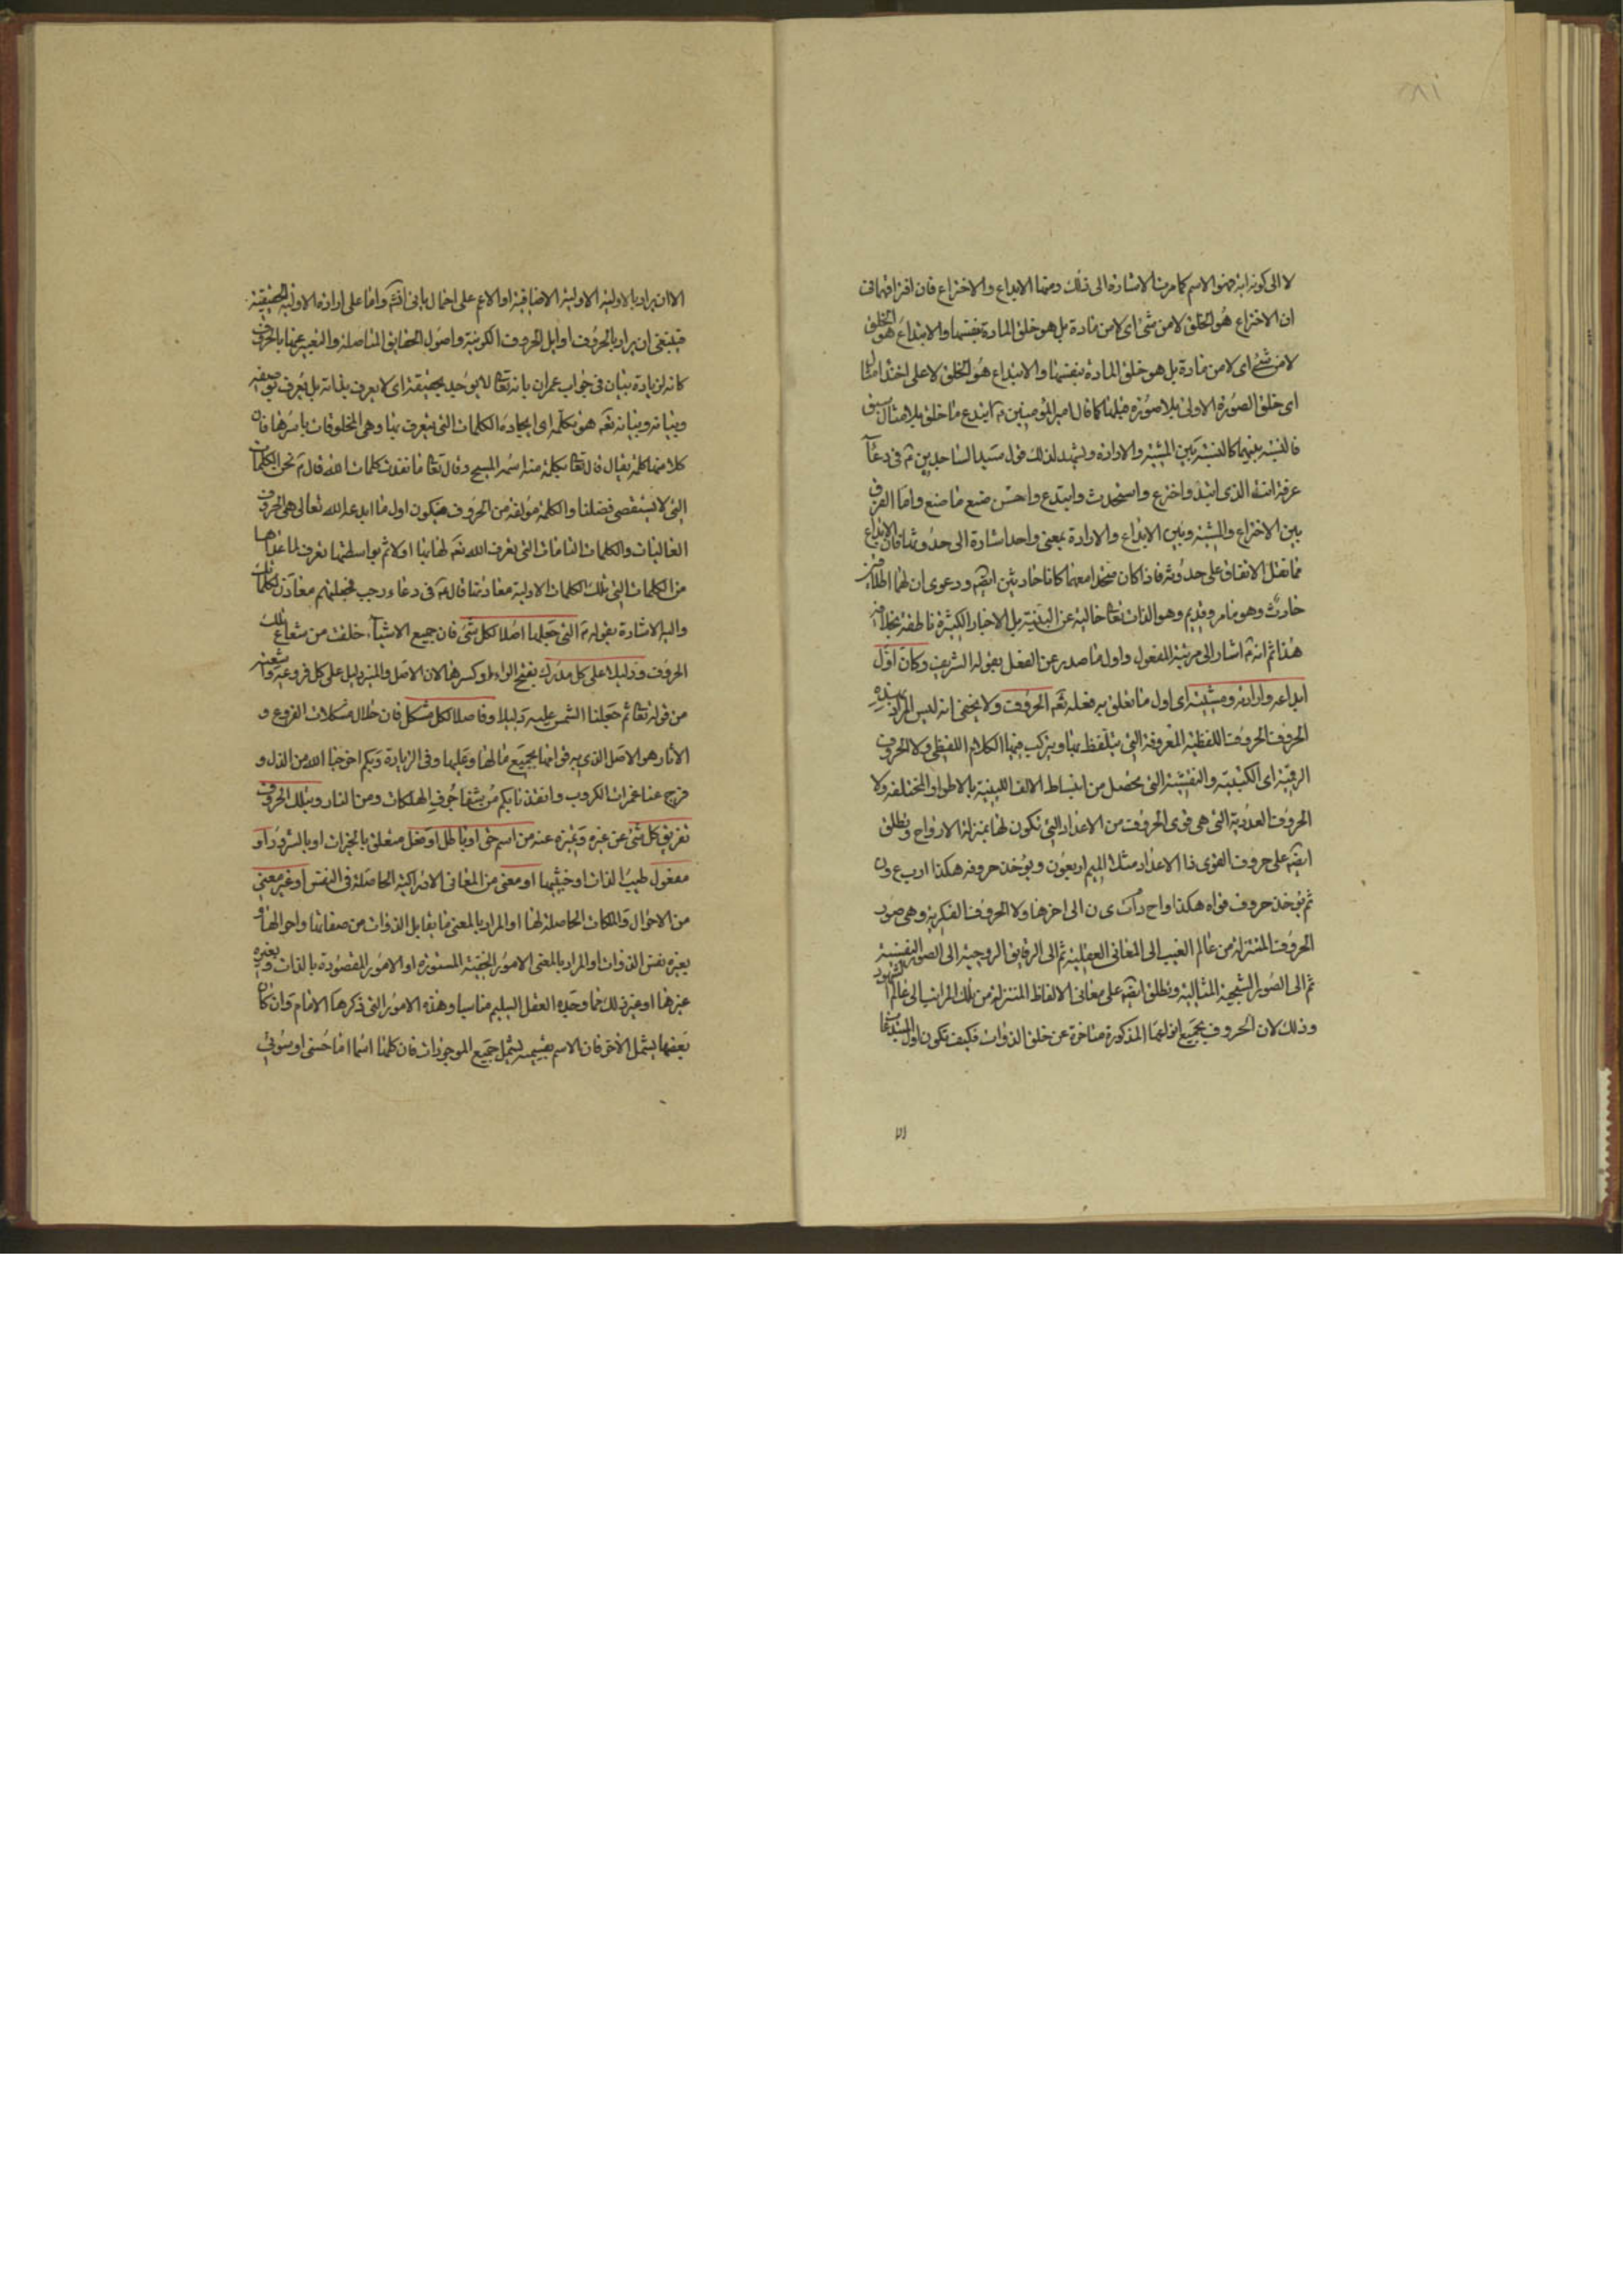 لا الى كونه اية فهو الاسم كما مرت الاشارة الى ذلك ومنها الابداع والاختراع فان افترقتا في
ان الاختراع هو الخلق لا من شئ اى لا من مادة بل هو خلق المادة بنفسها والابتداع هو الخلق
لا من شئ اى لا من مادة بل هو خلق المادة بنفسها والابتداع هو الخلق لا على احتذاء مثال
اى خلق الصورة الاولى بلا صورة قبلها كما قال امير المؤمنين ع ابتدع ما خلق بلا مثال سبق
فالنسبة بينهما كالنسبة بين المشية والارادة ويشهد لذلك قول سيد الساجدين ع فى دعاء
عرفة انت الذى ابتدأ واخترع واستحدث وابتدع واحسن صنع ما صنع واما الفرق
بين الاختراع والمشية وبين الابداع والارادة بمعنى واحد اشارة الى حدوثها فان الابداع
مما نقل الاتفاق على حدوثه فاذا كان متحدا معهما كانا حادثين ايضا ودعوى ان لهما اطلاقين
حادث وهو ما مر وقديم وهو الذات تعالى خالية عن البينة بل الاخبار الكثيرة ناطقة بخلافه
هذا ثم انه ع اشار الى مرتبة المفعول واول ما صدر عن الفعل بقوله الشريف وكان اول
ابداعه وارادته ومشيته اى اول ما تعلق به فعله تعالى الحروف ولا يخفى انه ليس المراد بهذه
الحروف الحروف اللفظية المعروفة التى يتلفظ بها ويتركب منها الكلام اللفظى ولا الحروف
الرقمية اى الكتبية والنقشية التى يحصل من انبساط الالف اللينية بالاطوار المختلفة ولا
الحروف العددية التى هى قوى الحروف من الاعداد التى تكون لها بمنزلة الارواح وتطلق
ايضا على حروف القوى ذا الاعداد مثلا الميم اربعون ويؤخذ حروفه هكذا ا ر ب ع و ن
ثم يؤخذ حروف قواه هكذا و اح د ى ن الى اخرها ولا الحروف الفكرية وهى صور
الحروف المنتزلة من عالم الغيب الى المعانى العقلية ثم الى الرقايق الروحية الى الصور النفسية
ثم الى الصور الشبحية المثالية وتطلق ايضا على معانى الالفاظ المنتزلة من تلك المراتب الى عالم الشهود
وذلك لان الحروف بجميع انواعها المذكورة متاخرة عن خلق الذوات فكيف تكون اول
الا
الا ان يراد بالاولية الاولية الاضافية او الاعم على احتمال ياتى انش واما على ارادة الاولية الحقيقية
فينبغى ان يراد بالحروف اوايل الحروف الكونية واصول الحقايق المتاصلة والتعبير عنها بالحروف
كانه لزيادة بيان فى جواب عمران بانه تعالى لا يوحد بحقيقة اى لا يعرف بذاته بل يعرف بوصفه
وبيانه وبيانه تعالى هو تكلمه اى ايجاده الكلمات التى يتعرف بها وهى المخلوقات باسرها فان
كلا منها كلمة يقال قال تعالى بكلمة منه اسمه المسيح وقال تعالى ما نفدت كلمات الله قال ع نحن الكلمات
التى لا يستقصى فضلنا والكلمة مؤلفة من الحروف فيكون اول ما ابدعه الله تعالى هى الحروف
العاليات والكلمات التامات التى يعرف الله تعالى لها بها اولا ثم بواسطتها تعرف لما عداها
من الكلمات التى تلك الكلمات الاولية معادنها قال ع فى دعاء رجب فجعلتهم معادن لكلماتك
واليه الاشارة بقوله ع التى جعلها اصلا لكل شئ فان جميع الاشياء خلقت من شعاع تلك
الحروف ودليلا على كل مدرك بفتح الراء او كسرها لان الاصل والمنير دليل على كل فروعه واشعته
من قوله تعالى ثم جعلنا الشمس عليه دليلا وفاصلا لكل مشكل فان حلال مشكلات الفروع و
الاثار هو الاصل الذى به قوامها بجميع مالها وعليها وفى الزيارة وبكم اخرجنا الله من الذل و
فرج عنا غمرات الكروب وانقذنا بكم من شفا جرف الهلكات ومن النار وبتلك الحروف
تفريق كل شئ عن غيره وتميزه عنه من اسم حق او باطل او فعل متعلق بالخيرات او بالشرور او
مفعول طيب الذات او خبيثها او معنى من المعانى الادراكية الحاصلة فى النفس او غير معنى
من الاحوال والملكات الحاصلة لها او المراد بالمعنى ما يقابل الذوات من صفاتها واحوالها و
بغيره نفس الذوات او المراد بالمعنى الامور الخفية المستورة او الامور المقصودة بالذات وبغيره
غيرها او غير ذلك مما وجده العقل السليم مناسبا وهذه الامور التى ذكرها الامام وان كان
بعضها يشمل الاخر فان الاسم بقسميه يشمل جميع الموجودات فان كلها اسما اما حسنى او سوئى